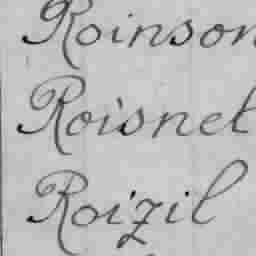 Roinson
Roisnel
Roizil